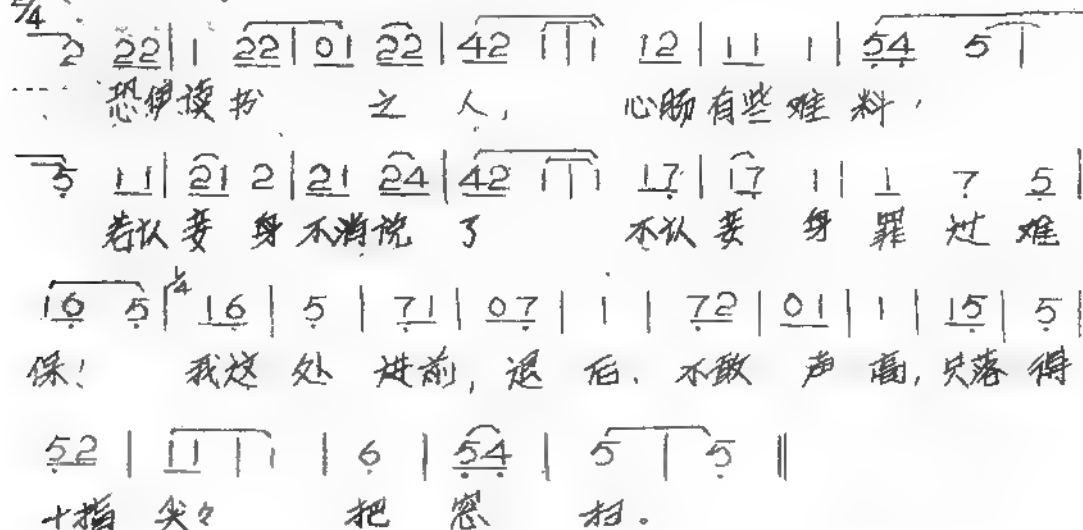 2/4
2 22 | 1 22 | 01 22 | 42 1 1 1 12 | 11 1 | 54 5 |
恐伊读书 之 人, 心肠有些难料,
5 11 | 21 2 | 21 24 | 42 1 1 1 17 | 17 1 | 1 7 5 |
若认妾 身不消说 了 不认妾 身 罪 过 难
16 5 | 1/4 16 | 5 | 71 | 07 | 1 | 72 | 01 | 1 | 15 | 5 |
保! 我这 处 进前, 退 后. 不敢 声 高, 只落 得
52 | 11 | 1 | 6 | 54 | 5 | 5 ‖
十指 尖々 把 窓 扫。